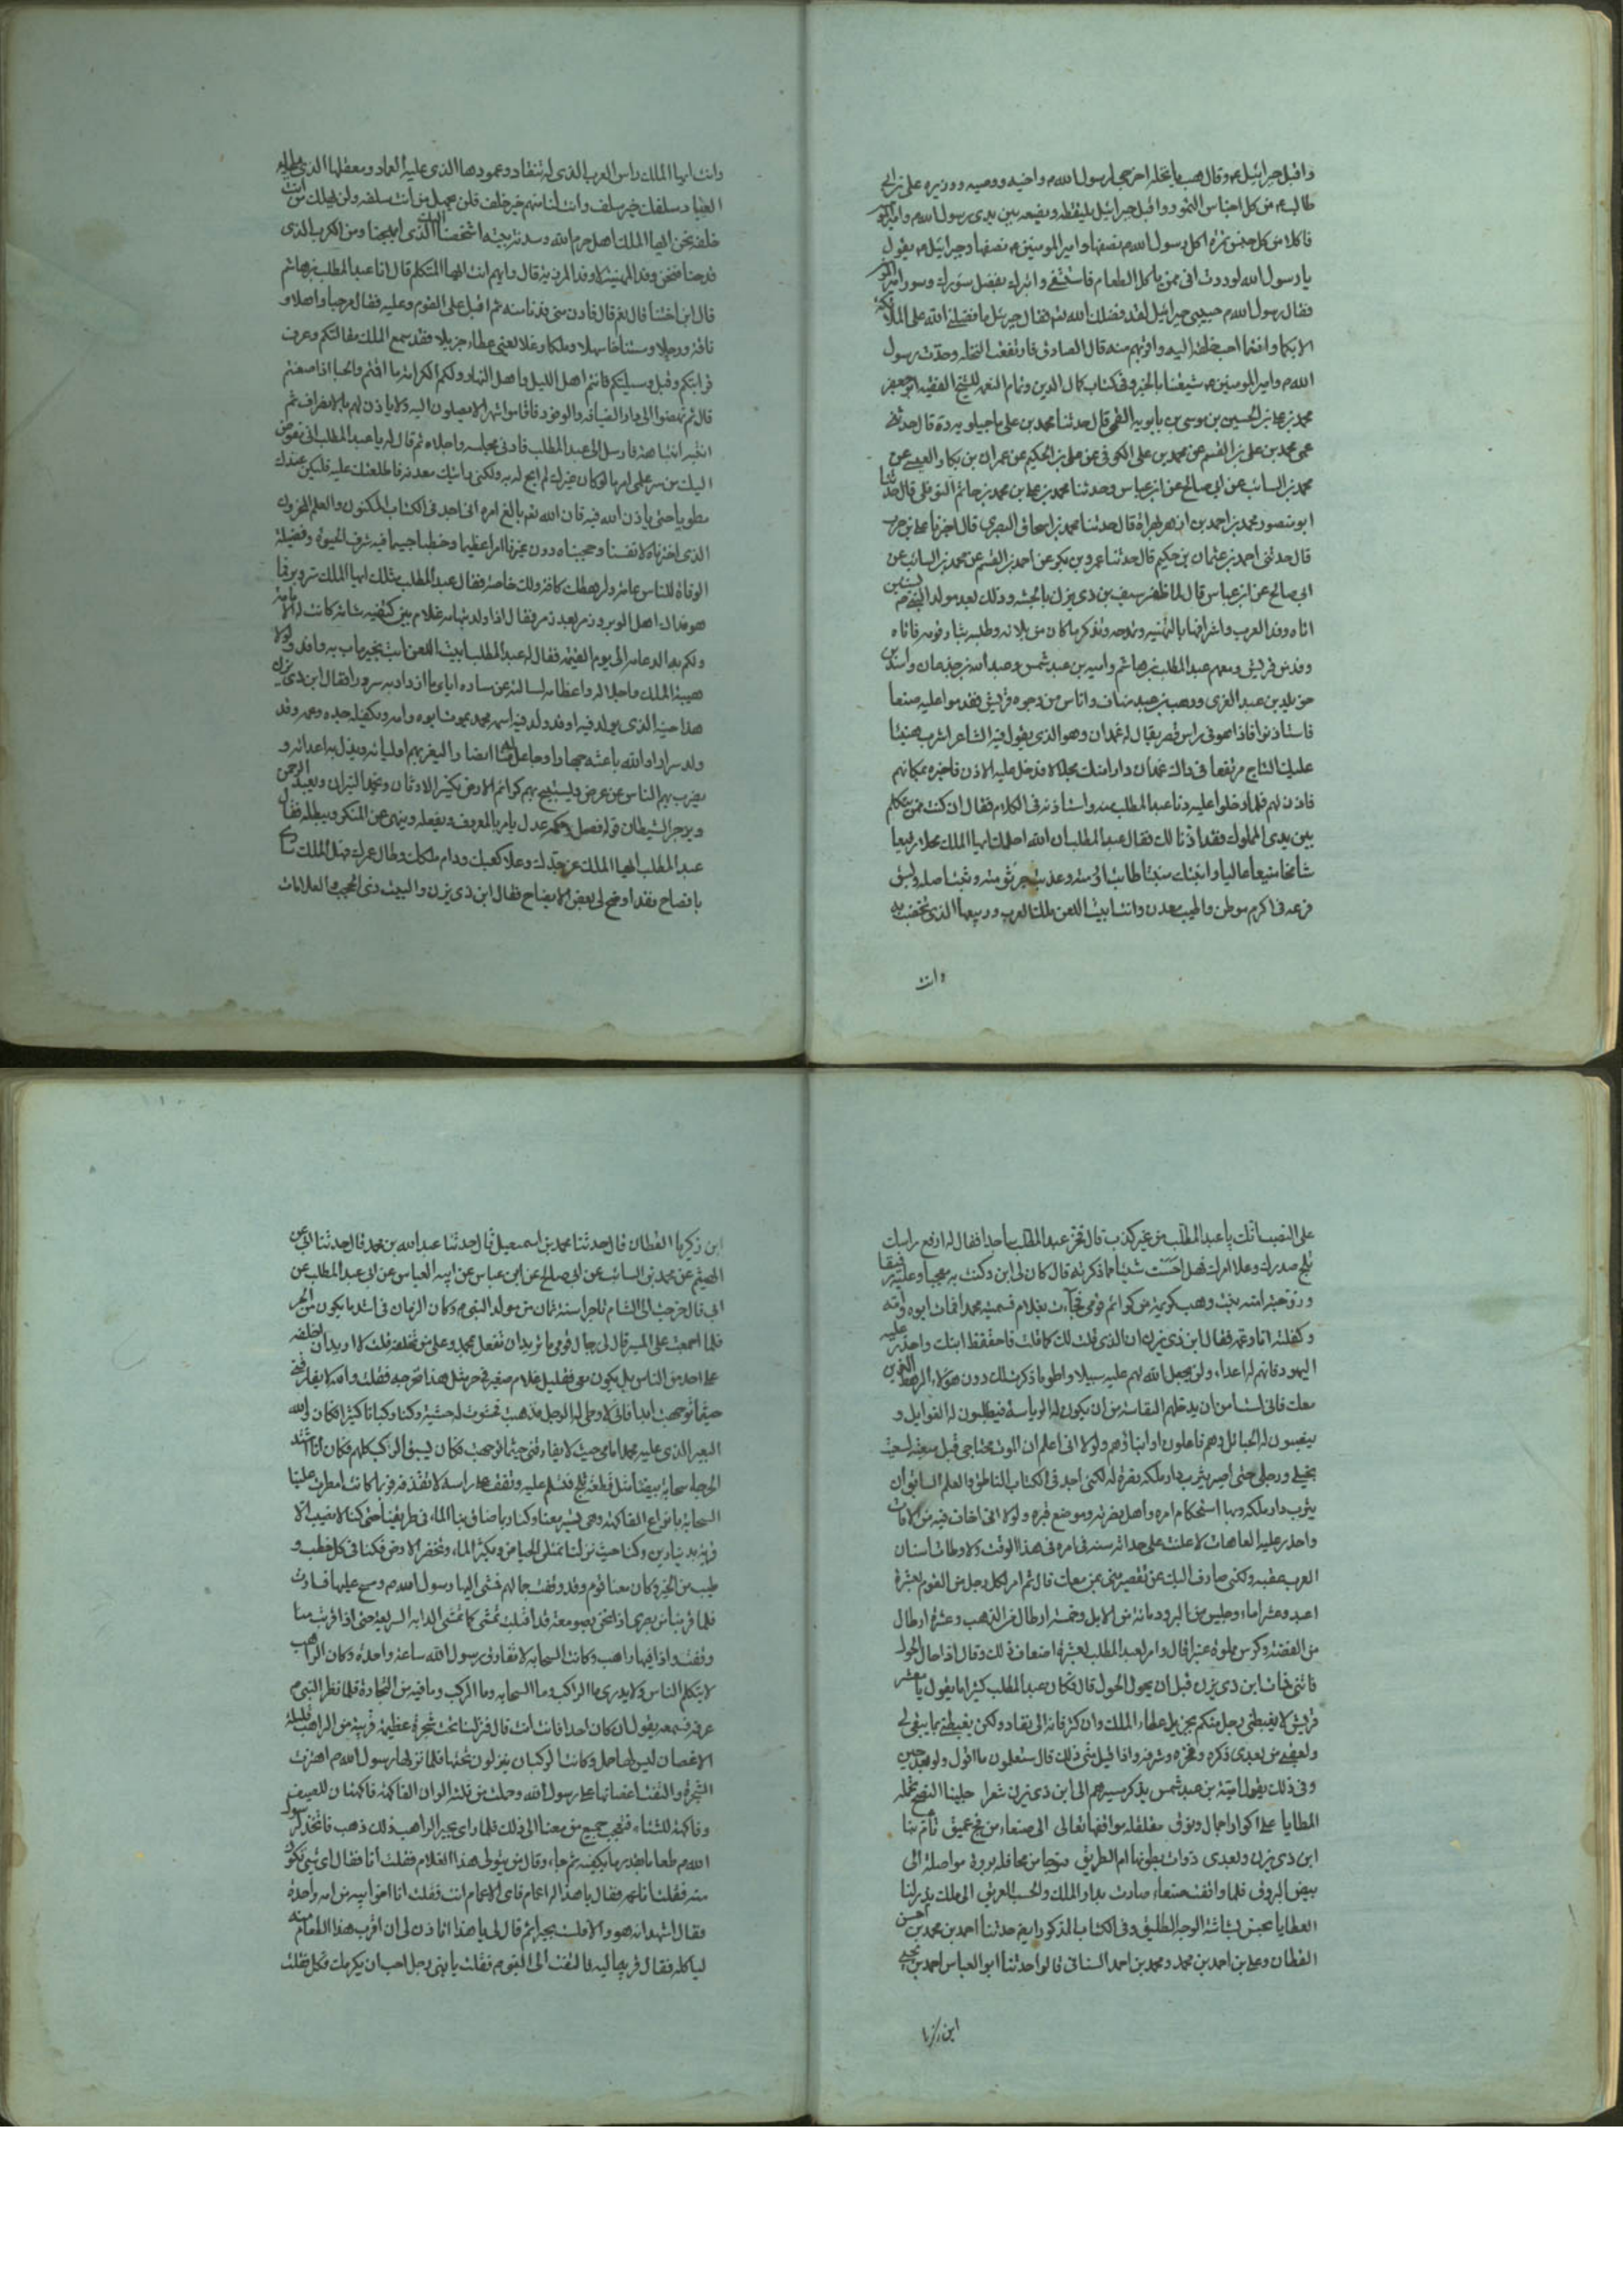 واقبل جبرائيل م وقال هب يا نخلة اخرجي لرسول الله م واخيه ووصيه ووزيره علي بن ابي
طالب م من كل اجناس التمور واقبل جبرائيل يلتقطه ويضعه بين يدي رسول الله م وامير
فاكلا من كل جنس تمرة اكل رسول الله م نصفها وامير المومنين م نصفها وجبرائيل م يقول
يا رسول الله لوددت اني ممن ياكل الطعام فاستشفي واتبرك بفضل سورك وسور امير
فقال رسول الله م حبيبي جبرائيل لقد فضلك الله فقال جبرئيل ما فضلني الله على الملائكة
الا بكما وانتما احب خلقه اليه واقربهم منه قال الصادق فارتفعت النخلة وحدث رسول
الله م وامير المومنين م شيعتنا بالخبر وفي كتاب كمال الدين وتمام النعمة للشيخ الفقيه ابو جعفر
محمد بن علي بن الحسين بن موسى بن بابويه القمي قال حدثنا محمد بن علي ماجيلويه ره قال حدثني
عمي محمد بن ابي القسم عن محمد بن علي الكوفي عن علي بن الحكيم عن عمران بن بكار العبسي عن
محمد بن السائب عن ابي صالح عن ابن عباس وحدثنا محمد بن علي بن محمد بن حاتم النوفلي قال حدثنا
ابو منصور محمد بن احمد بن ازهر بهراة قال حدثنا محمد بن اسحاق البصري قال اخبرنا علي بن حرب
قال حدثني احمد بن عثمان بن حكيم قال حدثنا عمرو بن بكر عن احمد بن القسم عن محمد بن السائب عن
ابي صالح عن ابن عباس قال لما ظفر سيف بن ذي يزن بالحبشة وذلك بعد مولد النبي م بسنتين
اتاه وفد العرب واشرافها بالتهنية وتمدحه وتذكر ما كان من بلائه وطلبه بثار قومه فاتاه
وفد من قريش ومعهم عبد المطلب بن هاشم وامية بن عبد شمس وعبد الله بن جذعان واسد بن
خويلد بن عبد العزى ووهب بن عبد مناف واناس من وجوه قريش فقدموا عليه صنعا
فاستاذنوا فاذا هو في راس قصر يقال له غمدان وهو الذي يقول فيه الشاعر اشرب هنيئا
عليك التاج مرتفعا في راس غمدان دارا منك محلالا فدخل عليه الاذن فاخبره بمكانهم
فاذن لهم فلما دخلوا عليه دنا عبد المطلب منه واستاذنه في الكلام فقال ان كنت ممن يتكلم
بين يدي الملوك فقد اذنا لك فقال عبد المطلب ان الله احلك ايها الملك محلا رفيعا
شامخا منيعا عاليا وانبتك منبتا طابت ارومته وعذبت جرثومته وثبت اصله وبسق
فرعه في اكرم موطن واطيب معدن وانت ابيت اللعن ملك العرب وربيعها الذي تخصب به
وانت
وانت ايها الملك راس العرب الذي له تنقاد وعمودها الذي عليه العماد ومعقلها الذي يلجا اليه
العباد سلفك خير سلف وانت لنا منهم خير خلف فلن يخمل من انت سلفه ولن يهلك من انت
خلفه نحن ايها الملك اهل حرم الله وسدنة بيته اشخصنا اليك الذي ابهجنا ومن الكرب الذي
فدحنا فنحن وفد التهنية لا وفد المرزية قال وايهم انت ايها المتكلم قال انا عبد المطلب بن هاشم
قال ابن اختنا قال نعم قال فادن مني فدنا منه ثم اقبل على القوم وعليه فقال مرحبا واهلا و
ناقة ورحلا ومستناخا سهلا وملكا وغلا يعني عطاء جزيلا فقد سمع الملك مقالتكم وعرف
قرابتكم وقبل وسيلتكم فانتم اهل الليل واهل النهار ولكم الكرامة ما اقمتم والحبا اذا ظعنتم
قال ثم نهضوا الى دار الضيافة والوفود فاقاموا شهرا لا يصلون اليه ولا ياذن لهم بالانصراف ثم
انتبه انتباهة فارسل الى عبد المطلب فادنى مجلسه واخلاه ثم قال له يا عبد المطلب اني مفوض
اليك من سر علمي امرا لو كان غيرك لم ابح له به ولكني رايتك معدنه فاطلعتك عليه فليكن عندك
مطويا حتى ياذن الله فيه فان الله نعم بالغ امره اني اجد في الكتاب المكنون والعلم المخزون
الذي اخترناه لانفسنا وحجبناه دون غيرنا امرا عظيما وخطبا جسيما فيه شرف الحيوة وفضيلة
الوفاة للناس عامة ولرهطك كافة ولك خاصة فقال عبد المطلب مثلك ايها الملك سر وبر فما
هو فداك اهل الوبر زمر بعد زمر فقال اذا ولد بتهامة غلام بين كتفيه شامة كانت له الامامة
ولكم به الدعامة الى يوم القيمة فقال له عبد المطلب ابيت اللعن ابت بخير ما آب به وافد ولولا
هيبة الملك واجلاله واعظامه لسالته عن ساره اياي ما ازداد به سرورا فقال ابن ذي يزن
هذا حينه الذي يولد فيه او قد ولد فيه اسمه محمد يموت ابوه وامه ويكفله جده وعمه وقد
ولد سرارا والله باعثه جهارا وجاعل له منا انصارا ليعز بهم اوليائه ويذل به اعدائه و
يضرب بهم الناس عن عرض ويستبيح بهم كرائم الارض يكسر الاوثان ويخمد النيران ويعبد الرحمن
ويزجر الشيطان قوله فصل وحكمه عدل يامر بالمعروف ويفعله وينهى عن المنكر ويبطله فقال
عبد المطلب ايها الملك عز جدك وعلا كعبك ودام ملكك وطال عمرك فهل الملك ساري
بافصاح فقد اوضح لي بعض الايضاح فقال ابن ذي يزن والبيت ذي الحجب والعلامات
على النصب انك يا عبد المطلب من غير كذب قال فخر عبد المطلب ساجدا فقال له ارفع راسك
ثلج صدرك وعلا امرك فهل احسست شيئا مما ذكرته قال كان لي ابن وكنت به معجبا وعليه رفيقا
وزوجته امنة بنت وهب كريمة من كرائم قومي فجآءت بغلام فسميته محمدا فمات ابوه وامه
وكفلته انا وعمه فقال ابن ذي يزن ان الذي قلت لك كما قلت فاحتفظ بابنك واحذر عليه
اليهود فانهم له اعداء ولن يجعل الله لهم عليه سبيلا واطو ما ذكرت لك دون هؤلاء الرهط الذين
معك فاني لست امن ان يدخلهم النفاسة من ان يكون له الرياسة فيطلبون له الغوايل و
ينصبون له الحبائل وهم فاعلون او ابنائهم ولولا اني اعلم ان الموت مجتاحي قبل مبعثه لسرت
بخيلي ورجلي حتى اصير بيثرب دار ملكه نصرة له لكني اجد في الكتاب الناطق والعلم السابق ان
يثرب دار ملكه وبها استحكام امره واهل نصرته وموضع قبره ولولا اني اخاف فيه من الافات
واحذر عليه العاهات لاعلنت على حداثة سنه في امره في هذا الوقت ولاوطات اسنان
العرب عقبه ولكني صارف اليك عن تقصير مني بمن معك قال ثم امر لكل رجل من القوم بعشرة
اعبد وعشر اماء وحلتين من البرود ومائة من الابل وخمسة ارطال من الذهب وعشرة ارطال
من الفضة وكرش مملوة عنبرا قال وامر لعبد المطلب بعشرة اضعاف ذلك وقال اذا حال الحول
فائتني فمات ابن ذي يزن قبل ان يحول الحول قال فكان عبد المطلب كثيرا ما يقول يا معشر
قريش لا يغبطني رجل منكم بجزيل عطاء الملك وان كثر فانه الى نفاد ولكن يغبطني بما يبقى لي
ولعقبي من بعدي ذكره وفخره وشرفه واذا قيل متى ذلك قال ستعلمون ما اقول ولو بعد حين
وفي ذلك يقول امية بن عبد شمس يذكر مسيرهم الى ابن ذي يزن شعرا جلبنا النصح تحمله
المطايا على اكوار اجمال ونوق مغلغلة مرافقها تعالى الى صنعاء من فج عميق تام بنا
ابن ذي يزن وتعدى ذوات بطونها ام الطريق وترجا من مخائله بروقا مواصلة الى
بيض البروق فلما وافقت صنعاء صارت بدار الملك والحسب العريق الى ملك يدر لنا
العطايا بحسن بشاشة الوجه الطليق وفي الكتاب المذكور ايضا حدثنا احمد بن محمد بن الحسن
القطان وعلي بن احمد بن محمد ومحمد بن احمد السناني قالوا حدثنا ابو العباس احمد بن يحيى
ابن زكريا
ابن زكريا القطان قال حدثنا محمد بن اسمعيل قال حدثنا عبد الله بن محمد قال حدثنا ابي عن
الهيثم عن محمد بن السائب عن ابي صالح عن ابن عباس عن ابيه العباس عن ابي عبد المطلب عن
ابي قال خرجت الى الشام تاجرا سنة ثمان من مولد النبي م وكان الزمان في اشد ما يكون من الحر
فلما اجمعت على المسير قال لي رجال قومي ما تريد ان تفعل بمحمد وعلى من تخلفه فقلت لا اريد ان اخلفه
على احد من الناس بل يكون معي فقيل غلام صغير في حر مثل هذا تخرجه فقلت والله لا يفارقني
حيثما توجهت ابدا فاني لاوطئ له الرحل فذهبت فحشوت له حشية وكنا ركبانا كثيرا فكان والله
البعير الذي عليه محمد امامي حيث لا يفارقني حيثما توجهت فكان يسبق الركب كلهم فكان اذا اشتد
الحر جاءت سحابة بيضا مثل قطعة ثلج فتسلم عليه وتقف على راسه لا تفارقه فربما كانت امطرت علينا
السحابة بانواع الفاكهة وهي تسير معنا وكنا ربما ضاق بنا الماء في طريقنا حتى كنا لا نصيب الا
قربة بدينارين وكنا حيث نزلنا تمتلى الحياض ويكثر الماء وتخضر الارض فكنا في كل خصب و
طيب من الخير وكان معنا قوم وقد وقفت جمالهم فمشى اليها رسول الله م ومسح عليها فسارت
فلما قربنا من بصرى اذا نحن بصومعة قد اقبلت تمشي كما تمشي الدابة السريعة حتى اذا قربت منا
وقفت واذا فيها راهب وكانت السحابة لا تفارق رسول الله ساعة واحدة وكان الراهب
لا يتكلم الناس ولا يدري ما الراكب وما السحابة وما الركب وما فيه من التجارة فلما نظر النبي م
عرفه فسمعته يقول ان كان احدا فانت انت قال فنزلنا تحت شجرة عظيمة قريبة من الراهب قليلة
الاغصان ليس لها حمل وكانت الركبان ينزلون تحتها فلما نزلها رسول الله م اهتزت
الشجرة والتفت اغصانها على رسول الله وحملت من ثلثة الوان الفاكهة فاكهتان للصيف
وفاكهة للشتاء فتعجب جميع من معنا الى ذلك فلما راى بحيرا الراهب ذلك ذهب فاتخذ لرسول
الله م طعاما بقدر ما يكفيه ثم جاء وقال من يتولى هذا الغلام فقلت انا فقال اي شيئ تكون
منه فقلت انا عمه فقال يا هذا له اعمام فاي الاعمام انت فقلت انا اخو ابيه من ام واحدة
فقال اشهد انه هو والا فلست بحيرا ثم قال لي يا هذا اتاذن لي ان اقرب هذا الطعام منه
لياكله فقال قربه اليه فالتفت الى النبي م فقلت يا بني رجل احب ان يكرمك فكل فقلت